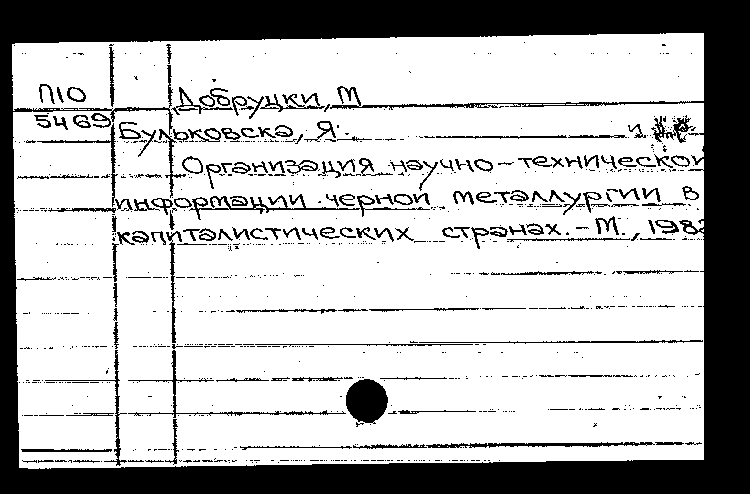 П10 Добруцки, М
5469 Бульковска, Я. и
Организация научно-технической
информации черной металлургии в
капиталистических странах. - М., 198